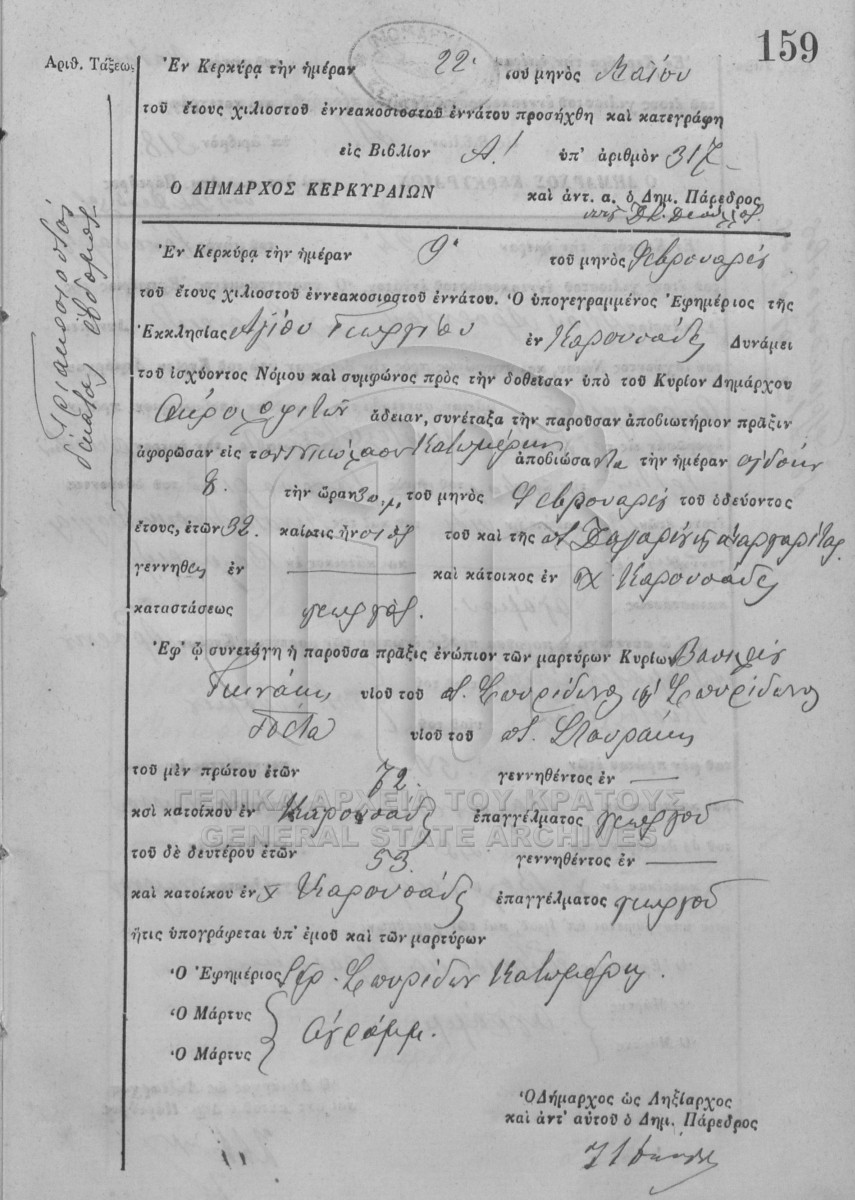 159
Ἀριθ. Τάξεως
Ἐν Κερκύρᾳ τὴν ἡμέραν 22 τοῦ μηνὸς Μαΐου
τοῦ ἔτους χιλιοστοῦ ἐννεακοσιοστοῦ ἐννάτου προσήχθη καὶ κατεγράφη
εἰς Βιβλίον Α! ὑπ' ἀριθμὸν 317
Ο ΔΗΜΑΡΧΟΣ ΚΕΡΚΥΡΑΙΩΝ καὶ ἀντ. α. ὁ Δημ. Πάρεδρος
Τριακοσιοστός
δέκατος ἕβδομος
Ἐν Κερκύρᾳ τὴν ἡμέραν 9 τοῦ μηνὸς Φεβρουαρίου
τοῦ ἔτους χιλιοστοῦ ἐννεακοσιοστοῦ ἐννάτου. Ὁ ὑπογεγραμμένος Ἐφημέριος τῆς
Ἐκκλησίας Ἁγίου Γεωργίου ἐν Καρουσάδες Δυνάμει
τοῦ ἰσχύοντος Νόμου καὶ συμφώνος πρὸς τὴν δοθεῖσαν ὑπὸ τοῦ Κυρίου Δημάρχου
ἄδειαν, συνέταξα τὴν παροῦσαν ἀποβιωτήριον πρᾶξιν
ἀφορῶσαν εἰς τὸν Νικόλαον Κατωμέρης ἀποβιώσαντα τὴν ἡμέραν ὀγδόην
8. τὴν ὥραν 3 π.μ. τοῦ μηνὸς Φεβρουαρίου τοῦ ὁδεύοντος
ἔτους, ἐτῶν 32. καὶ ὅτις ἦν τοῦ καὶ τῆς Μαργαρίτας
γεννηθεὶς ἐν καὶ κάτοικος ἐν χ Καρουσάδες
καταστάσεως γεωργὸς.
Ἐφ' ᾧ συνετάγη ἡ παροῦσα πρᾶξις ἐνώπιον τῶν μαρτύρων Κυρίων Βασιλείου
υἱοῦ τοῦ π. Σπυρίδωνος καὶ Σπυρίδωνος
υἱοῦ τοῦ π.
τοῦ μὲν πρώτου ἐτῶν 72. γεννηθέντος ἐν
καὶ κατοίκου ἐν Καρουσάδες ἐπαγγέλματος γεωργοῦ
ΓΕΝΙΚΑ ΑΡΧΕΙΑ ΤΟΥ ΚΡΑΤΟΥΣ
GENERAL STATE ARCHIVES
τοῦ δὲ δευτέρου ἐτῶν 53. γεννηθέντος ἐν
καὶ κατοίκου ἐν χ Καρουσάδες ἐπαγγέλματος γεωργοῦ
ἥτις ὑπογράφεται ὑπ' ἐμοῦ καὶ τῶν μαρτύρων
Ὁ Ἐφημέριος Ἱερ. Σπυρίδων Κατωμέρης.
Ὁ Μάρτυς
Ἀγράμμ.
Ὁ Μάρτυς
Ὁ Δήμαρχος ὡς Ληξίαρχος
καὶ ἀντ' αὐτοῦ ὁ Δημ. Πάρεδρος